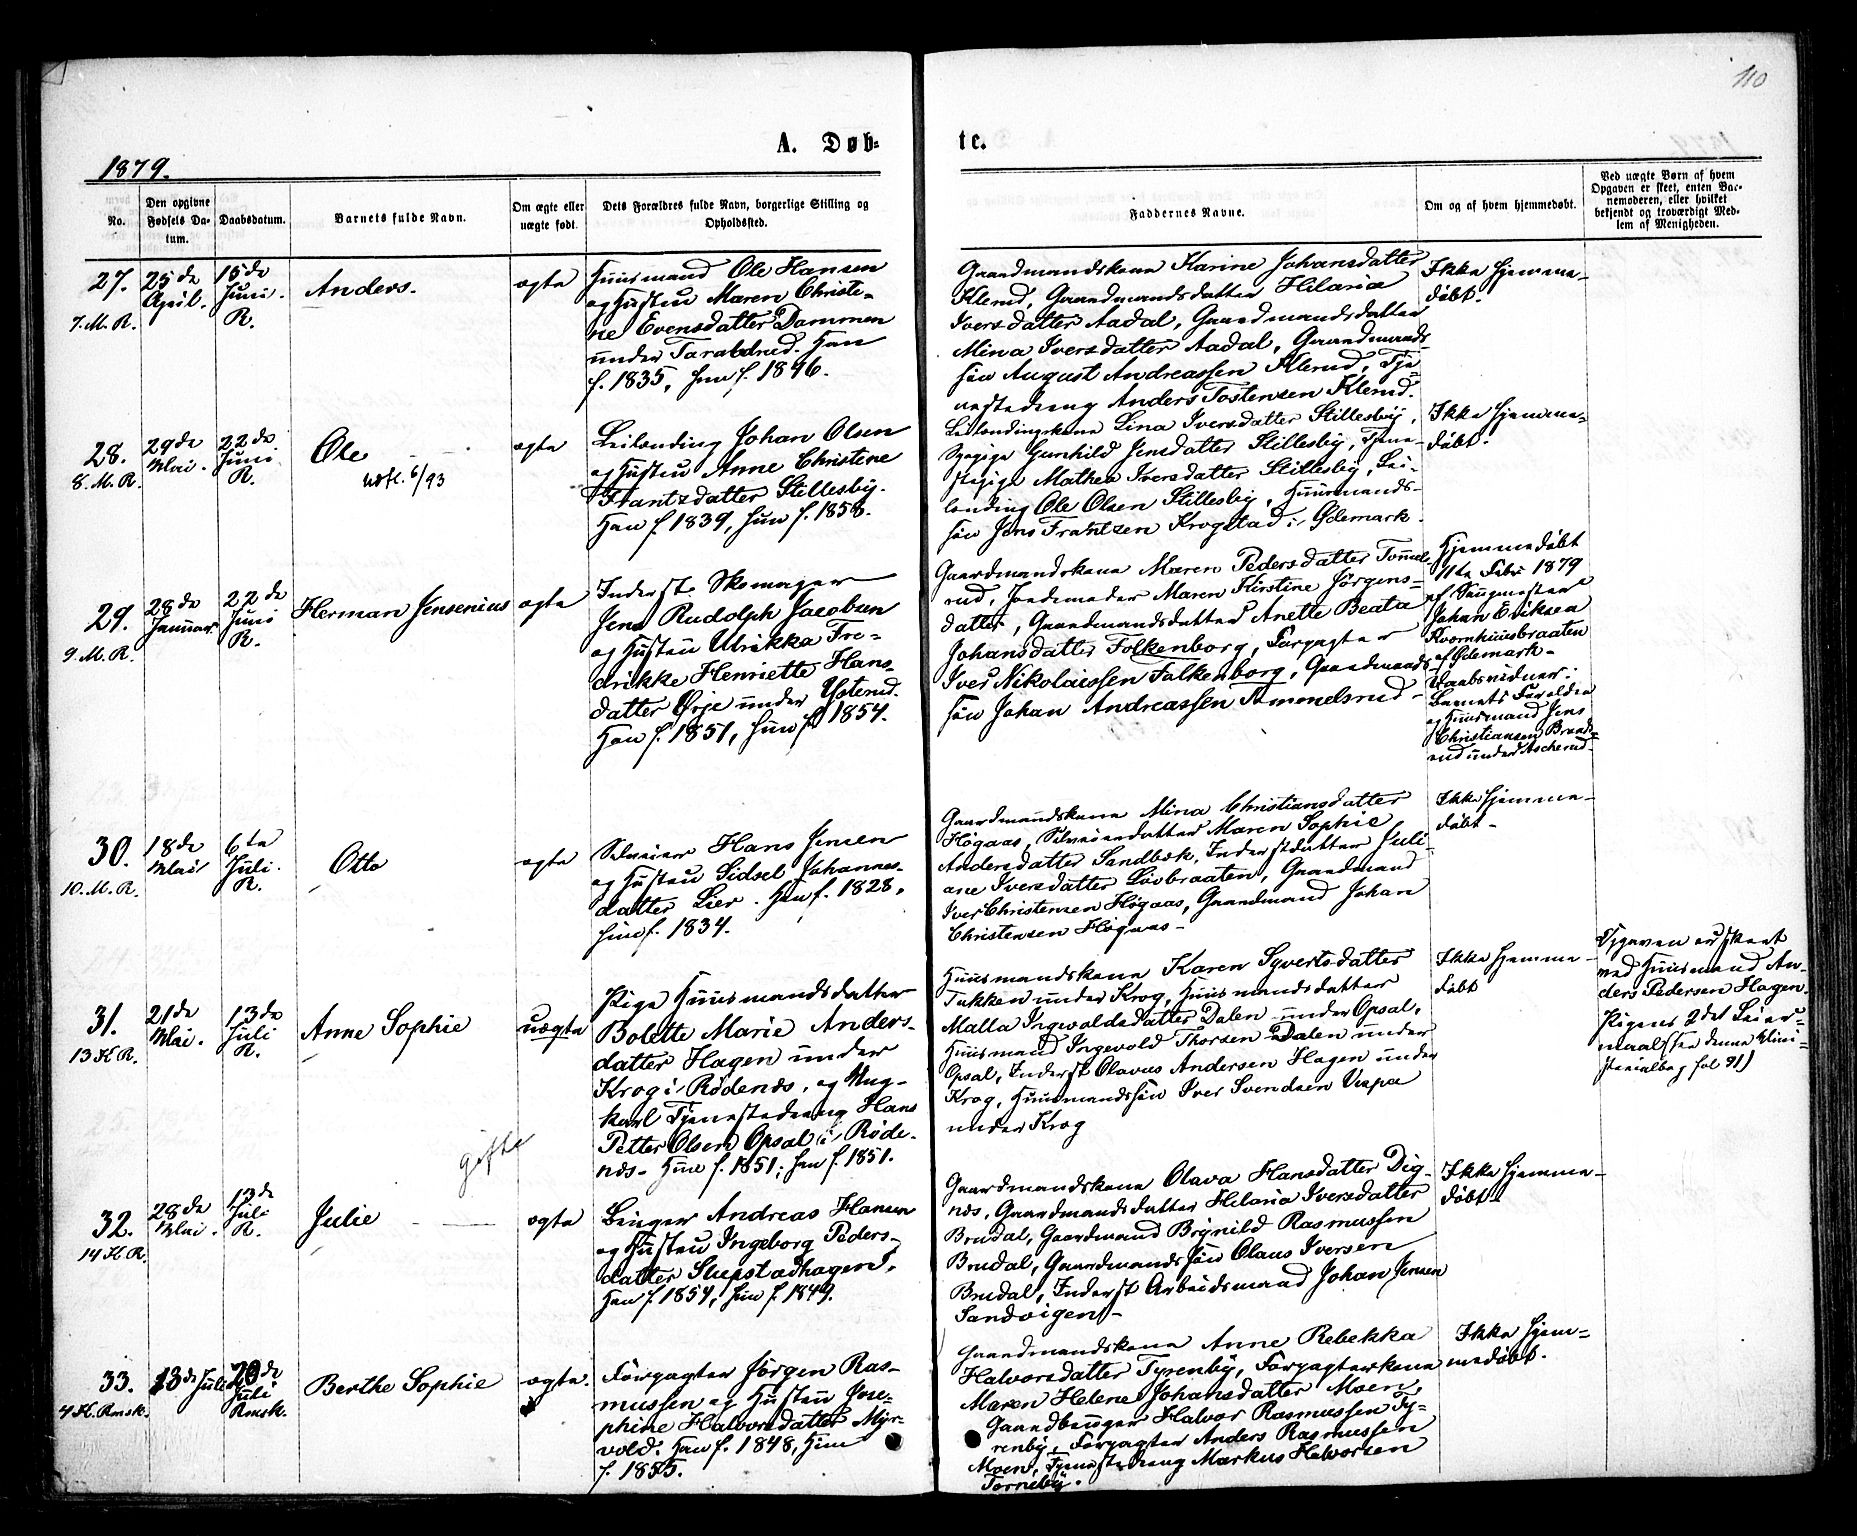 110
A. Døb-
te.
1879.
No.
Den opgivne
Fødsels Da-
tum.
Daabsdatum.
Barnets fulde Navn.
Om ægte eller
uægte født.
Dets Forældres fulde Navn, borgerlige Stilling og
Opholdssted.
Faddernes Navne.
Om og af hvem hjemmedøbt.
Ved uægte Børn af hvem
Opgaven er skeet, enten Bar-
nemoderen, eller hvilket
bekjendt og troværdigt Med-
lem af Menigheden.
27.
7. M. R.
25de
April.
15de
Juni.
R.
Anders.
ægte
Huusmand Ole Hansen
og Hustru Maren Christi-
ne Evensdatter Dammen
under Tarabdrud. Han
f. 1835, hun f. 1846.
Gaardmandskone Karine Johansdatter
Klerud, Gaardmandsdatter Hilaria
Iversdatter Aadal, Gaardmandsdatter
Mina Iversdatter Aadal, Gaardmands-
søn August Andreassen Klerud, Tje-
nestedreng Anders Tostensen Klerud.
Ikke hjemme-
døbt.
28.
8. M. R.
29de
Mai.
22de
Juni
R.
Ole
Udfl. 6/93
ægte
Leilænding Johan Olsen
og Hustru Anne Christine
Frantzdatter Stillesby.
Han f. 1839, hun f. 1858.
Leilændingskone Lina Iversdatter Stillesby,
Gunhild Jensdatter Stillesby, Tjene-
stepige Mathea Iversdatter Stillesby, Lei-
lænding Ole Olsen Stillesby, Huusmands-
søn Jens Frantzen Krogstad i Ødemark.
Ikke hjemme-
døbt.
29.
9. M. R.
28de
Januar
22de
Juni
R.
Herman Jensenius
ægte
Inderst Skomager
Jens Rudolph Jacobsen
og Hustru Ulrikka Fre-
drikke Henriette Hans-
datter Ørje under Ysterud.
Han f. 1851, hun f. 1854.
Gaardmandskone Maren Pedersdatter Tommels-
rud, Jordemoder Maren Kirstine Jørgens-
datter, Gaardmandsdatter Anette Beata
Johansdatter Folkenborg, Forpagter
Iver Nikolaissen Folkenborg, Gaardmands-
søn Johan Andreassen Tommelsrud
Hjemmedøbt
11te Febr 1879
af Sangmester
Johan Eriksen
Kvernhuusbraaten
af Ødemark.
Daabsvidner:
Barnets Forældre
og Huusmand Jens
Christiansen Brænde-
rud under Ascherud.
30.
10. M. R.
18de
Mai
6te
Juli.
R.
Otto
ægte
Selveier Hans Jensen
og Hustru Sidsel Johannes-
datter Lier. Han f. 1828,
hun f. 1834.
Gaardmandskone Mina Christiansdatter
Høgaas, Selveierdatter Maren Sophie
Andersdatter Sandbæk, Inderstdatter Juli-
ane Iversdatter Løvbraaten, Gaardmand
Iver Christensen Høgaas, Gaardmand Johan
Christensen Høgaas
Ikke hjemme-
døbt
31.
13 H R.
21de
Mai.
13de
Juli
R.
Anne Sophie
uægte
Pige Huusmandsdatter
Bolette Marie Anders-
datter Hagen under
Krog i Rødenæs, og Ung-
karl Tjenestedreng Hans
Petter Olsen Opsal i Røde-
næs. Hun f. 1851; han f. 1851.
Huusmandskone Karen Syvertsdatter
Tukken under Krog, Huusmandsdatter
Malla Ingevoldsdatter Dalen under Opsal,
Huusmand Ingevold Thorsen Dalen under
Opsal, Inderst Olavus Andersen Hagen under
Krog, Huusmandssøn Iver Svendsen Vispa
under Krog
Ikke hjemme-
døbt
Opgaven er skeet
ved Huusmand An-
ders Pedersen Hagen.
Pigens 2det Leier-
maal (see denne Mini-
sterialbog fol 91)
gifte
32.
14 H. R.
28de
Mai.
13de
Juli
R.
Julie
ægte
Bruger Andreas Hansen
og Hustru Ingeborg Peders-
datter Slupstadhagen.
Han f. 1854, hun f. 1849.
Gaardmandskone Olava Hansdatter Dig-
næs, Gaardmandsdatter Hilaria Iversdatter
Brudal, Gaardmand Brynild Rasmussen
Brudal, Gaardmandssøn Olaus Iversen
Brudal, Inderst Arbeidsmand Johan Jensen
Sandvigen
Ikke hjemme-
døbt
33.
4 H. Rmsk.
13de Juli
20de
Juli
Rmsk.
Berthe Sophie
ægte.
Forpagter Jørgen Ras-
mussen og Hustru Jose-
phine Halvorsdatter Myr-
vold. Han f. 1848, Hun
f. 1855.
Gaardmandskone Anne Rebekka
Halvorsdatter Tyrenby, Forpagterkone
Maren Helene Johansdatter Moen,
Gaardbruger Halvor Rasmussen Ty-
renby, Forpagter Anders Rasmussen
Moen, Tjenestedreng Markus Halvorsen
Torneby.
Ikke hjem-
medøbt.